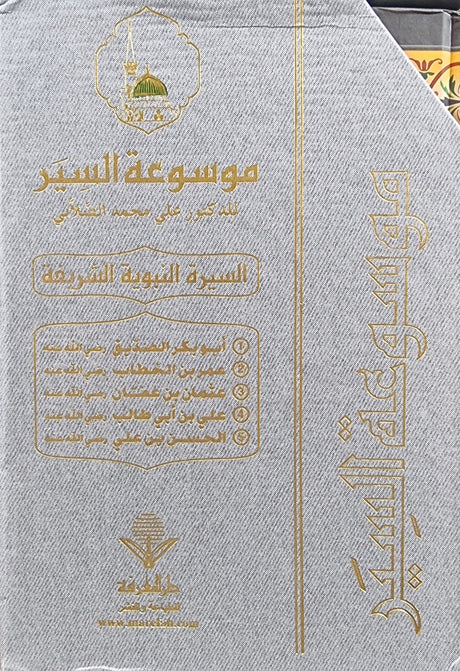 موسوعة السِيَر
للدكتور علي محمد الصلابي
السيرة النبوية الشريفة
① أبو بكر الصديق رضي الله عنه
② عمر بن الخطاب رضي الله عنه
③ عثمان بن عفان رضي الله عنه
④ علي بن أبي طالب رضي الله عنه
⑤ الحسن بن علي رضي الله عنه
دار المعرفة
للطباعة والنشر
www.marefah.com
موسوعة السِيَر